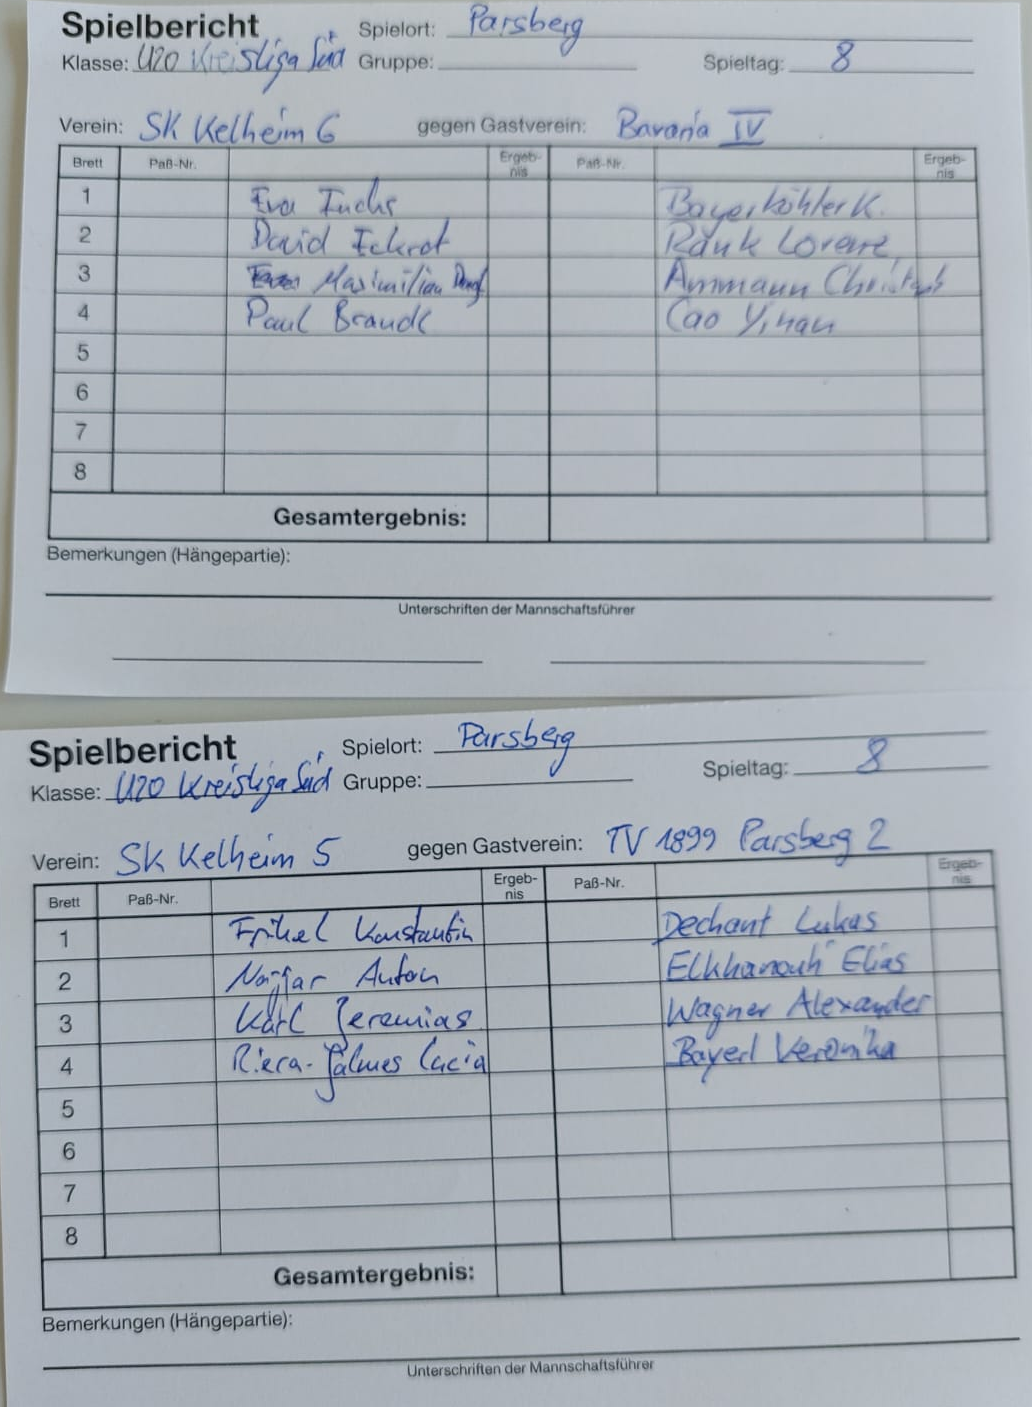 Spielbericht Spielort: Parsberg
Klasse: U20 Kreisliga Süd Gruppe: Spieltag: 8
Verein: SK Kelheim 6 gegen Gastverein: Bavaria IV
Brett Paß-Nr. Ergeb-nis Paß-Nr. Ergeb-nis
1 Eva Fuchs Bayerköhler K.
2 David Eckrot Ränk Lorenz
3 Maximilian Ammann Christoph
4 Paul Brandl Cao Yinan
5
6
7
8
Gesamtergebnis:
Bemerkungen (Hängepartie):
Unterschriften der Mannschaftsführer
Spielbericht Spielort: Parsberg
Klasse: U20 Kreisliga Süd Gruppe: Spieltag: 8
Verein: SK Kelheim 5 gegen Gastverein: TV 1899 Parsberg 2
Brett Paß-Nr. Ergeb-nis Paß-Nr. Ergeb-nis
1 Frikel Konstantin Dechant Lukas
2 Najjar Anton Elkhanouh Elias
3 Karl Jeremias Wagner Alexander
4 Riera-Jalmes Lucia Bayerl Veronika
5
6
7
8
Gesamtergebnis:
Bemerkungen (Hängepartie):
Unterschriften der Mannschaftsführer